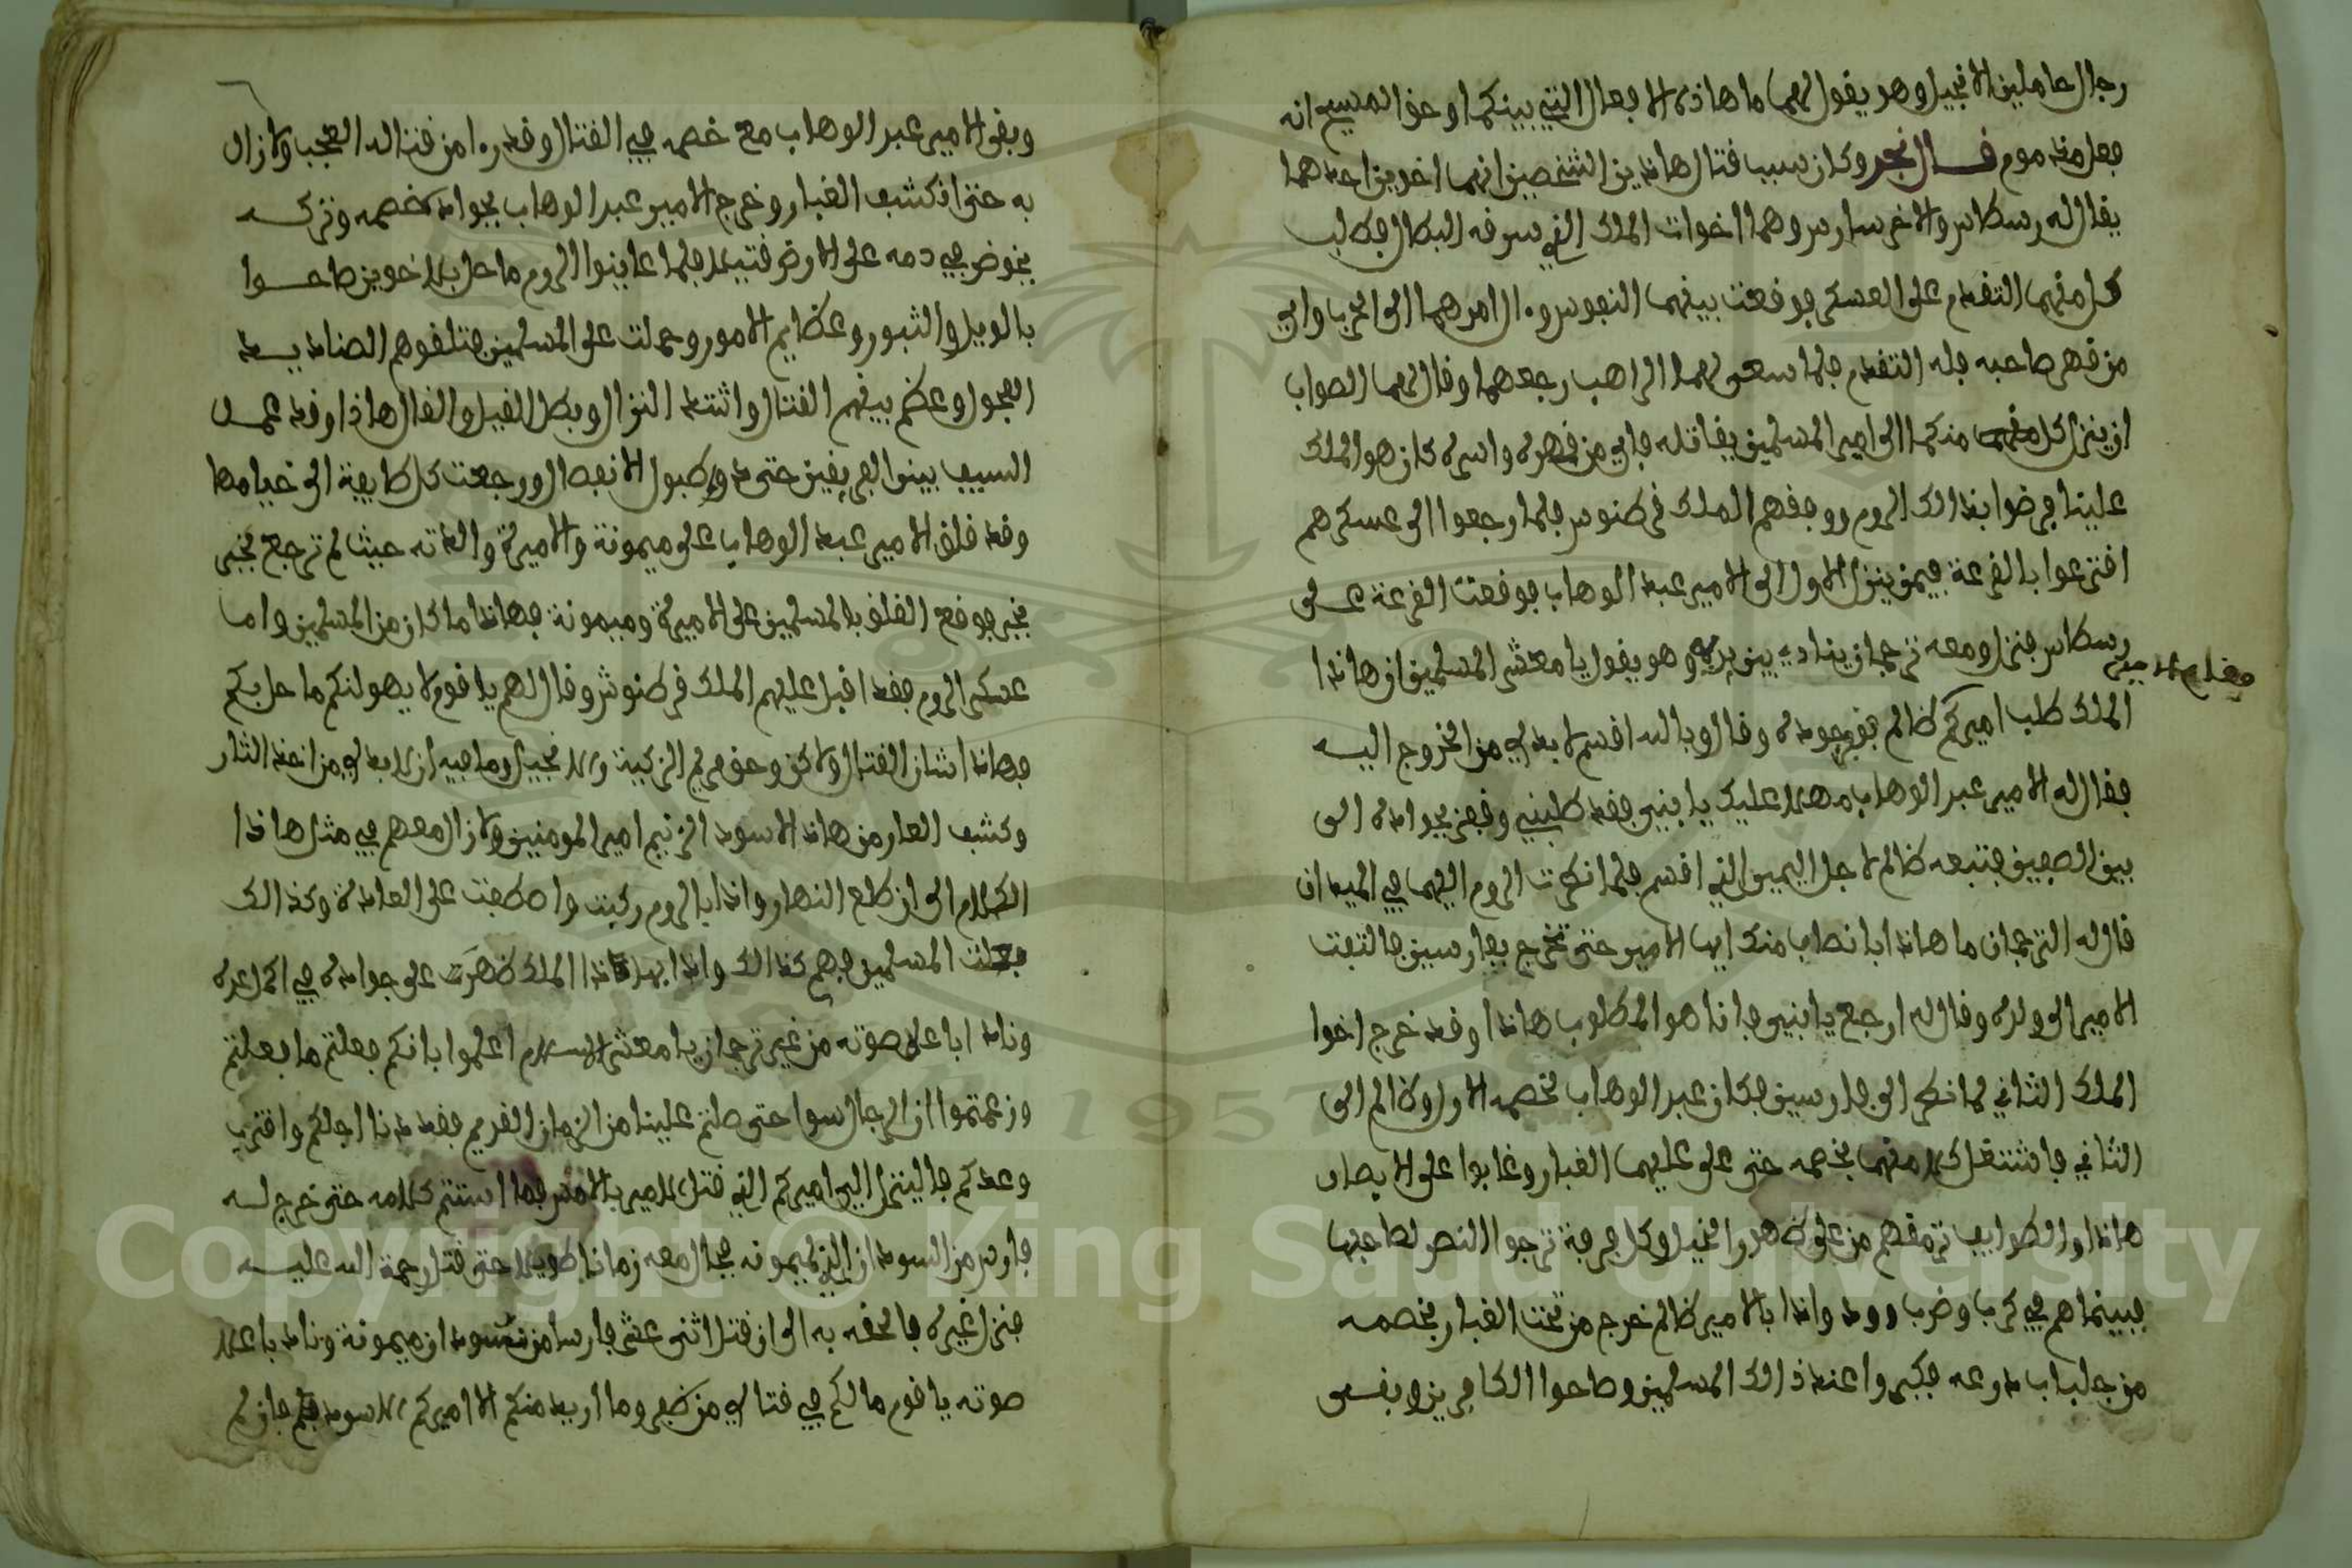 رجال حاملين الانجيل وهو يقول لهما ما هاذه الافعال التي بينكما وحق المسيح انه
فعل مذموم قال نجد وكان سبب قتال هاذين الشخصين انهما اخوين احدهما
يقال له رسطاس والاخر سارس وهما اخوات الملك الذي سرقه البطال فطلب
كل منهما التقدم على العسكر فوقعت بينهما النفوس وءال امرهما الى الحرب واي
من قهر صاحبه فله التقدم فلما سعى لهما الراهب رجعهما وقال لهما الصواب
ان ينزل كل منكما الى امير المسلمين يقاتله فاي من قهره واسره كان هو الملك
علينا فرضوا بذالك الروم ووقفهم الملك قرطنوس فلما رجعوا الى عسكرهم
اقترعوا بالقرعة فيمن ينزل الاول الى الامير عبد الوهاب فوقعت القرعة على
رسطاس فنزل ومعه ترجمان ينادي بين يديه وهو يقول يا معشر المسلمين ان هاذا
الملك طلب اميركم ظالم وقال وبالله اقسم لا بد لي من الخروج اليه
فقال له الامير عبد الوهاب مهلا عليك يا بنيي فقد طلبني وقفز بجواده الى
بين الصفين فتبعه ظالم لاجل اليمين الذي اقسم فلما نظرت الروم اليهما في الميدان
قال له الترجمان ما هاذا بانصاف منك ايها الامير حتى تخرج بفارسين فالتفت
الامير الى ولده وقال له ارجع يا بنيي فانا هو المطلوب هاذا وقد خرج اخوا
الملك الثاني لما نظر الى فارسين فكان عبد الوهاب لخصمه الاول وظالم الى
الثاني فاشتغل كل منهما بخصمه حتى على عليهما الغبار وغابوا على الابصار
هاذا والطوايف ترمقهم من على ظهور الخيل وكل فرقة ترجوا النصر لصاحبها
فبينما هم في كرب وضرب وود واذا بالامير ظالم خرج من تحت الغبار بخصمه
من جلباب درعه فكبروا عند ذالك المسلمين وصاحوا الكافرين وبقى
وبقى الامير عبد الوهاب مع خصمه في القتال وقد را من قتاله العجب ولا زال
به حتى انكشف الغبار وخرج الامير عبد الوهاب بجواد خصمه وتركه
يخوض في دمه على الارض قتيلا فلما عاينوا الروم ما حل بالاخوين صاحوا
بالويل والثبور وعظايم الامور وحملت على المسلمين فتلقوهم الصناديد
الفحول وعظم بينهم القتال واشتد النزال وبطل القيل والقال هاذا وقد عمل
السيف بينوا الفريقين حتى دق طبول الانفصال ورجعت كل طايفة الى خيامها
وقد قلق الامير عبد الوهاب على ميمونة والاميرة والدته حيث لم ترجع بخبر
بخبر فوقع القلق بالمسلمين على الاميرة وميمونة فهاذا ما كان من المسلمين واما
عسكر الروم فقد اقبل عليهم الملك قرطنوش وقال لهم يا قوم لا يهولنكم ما حل بكم
فهاذا شان القتال ولاكن وحق مريم الزكية والانجيل وما فيه ان لا بد لي من اخذ الثار
وكشف العار من هاذا الاسود الزنيم امير المومنين ولا زال معهم في مثل هاذا
الكلام الى ان طلع النهار واذا بالروم ركبت واصطفت على العادة وكذالك
فعلت المسلمين فهم كذالك واذا بهاذا الملك ظهرت على جواده في اكراعره
ونادا باعلا صوته من غير ترجمان يا معشر الاسلام اعلموا بانكم فعلتم ما فعلتم
وزعمتموا ان الرجال سوا حتى صلتم علينا من الزمان القديم فقد دنا اجلكم واقترب
وعدكم فالينزل اليي اميركم الذي قتل الامير بالامس فما استتم كلامه حتى خرج له
فارس من السودان الذي لميمونه فجال معه زمانا طويلا حتى قتل رحمة الله عليه
فنزل غيره فالحقه به الى ان قتل اثنى عشر فارسا من سودان ميمونة ونادا باعلا
صوته يا قوم ما لكم في قتالي من ضفر وما اريد منكم الا اميركم الاسود فان لم